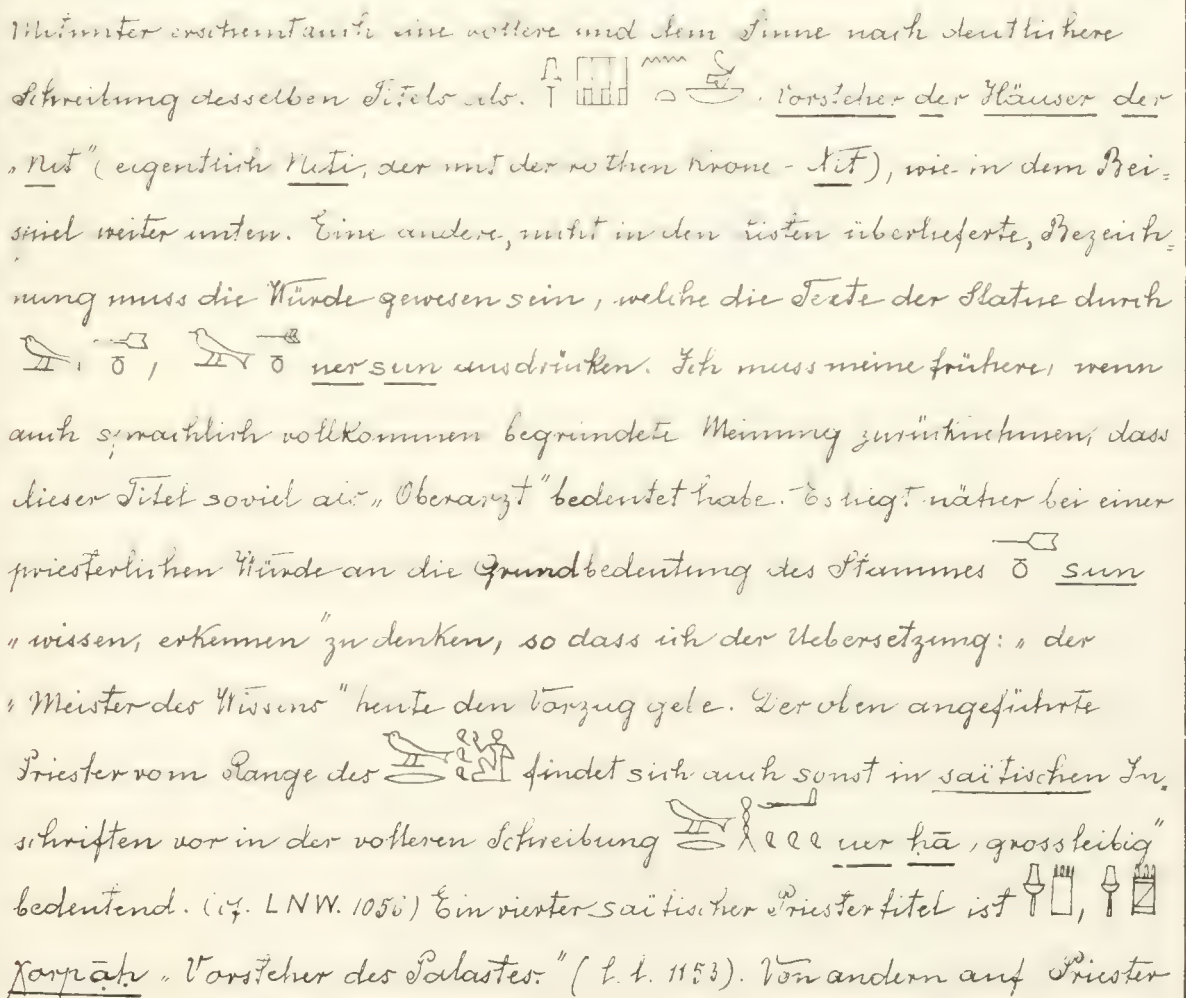 Mitunter erscheint auch eine vollere und dem Sinne nach deutlichere
Schreibung desselben Titels als. Vorsteher der Häuser der
„Nit" (eigentlich Niti, der mit der rothen Krone - Nit), wie in dem Bei=
spiel weiter unten. Eine andere, nicht in den Listen überlieferte, Bezeich=
nung muss die Würde gewesen sein, welche die Texte der Statue durch
, uer sun ausdrücken. Ich muss meine frühere, wenn
auch sprachlich vollkommen begründete Meinung zurücknehmen, dass
dieser Titel soviel als „Oberarzt" bedeutet habe. Es liegt näher bei einer
priesterlichen Würde an die Grundbedeutung des Stammes sun
„wissen, erkennen" zu denken, so dass ich der Uebersetzung: „der
„Meister des Wissens" heute den Vorzug gebe. Der oben angeführte
Priester vom Range des findet sich auch sonst in saïtischen In=
schriften vor in der volleren Schreibung uer ḥā „grossleibig"
bedeutend. (cf. LNW. ) Ein vierter saïtischer Priestertitel ist ,
χorp āḥ „Vorsteher des Palastes." (l. l. 1153). Von andern auf Priester